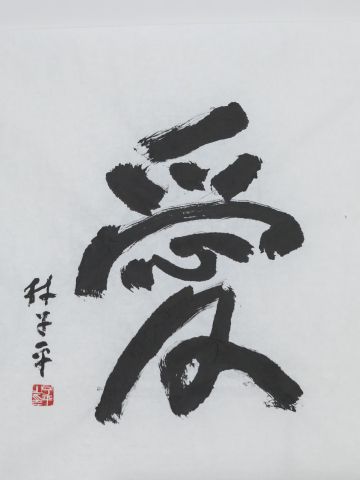 愛
林子平